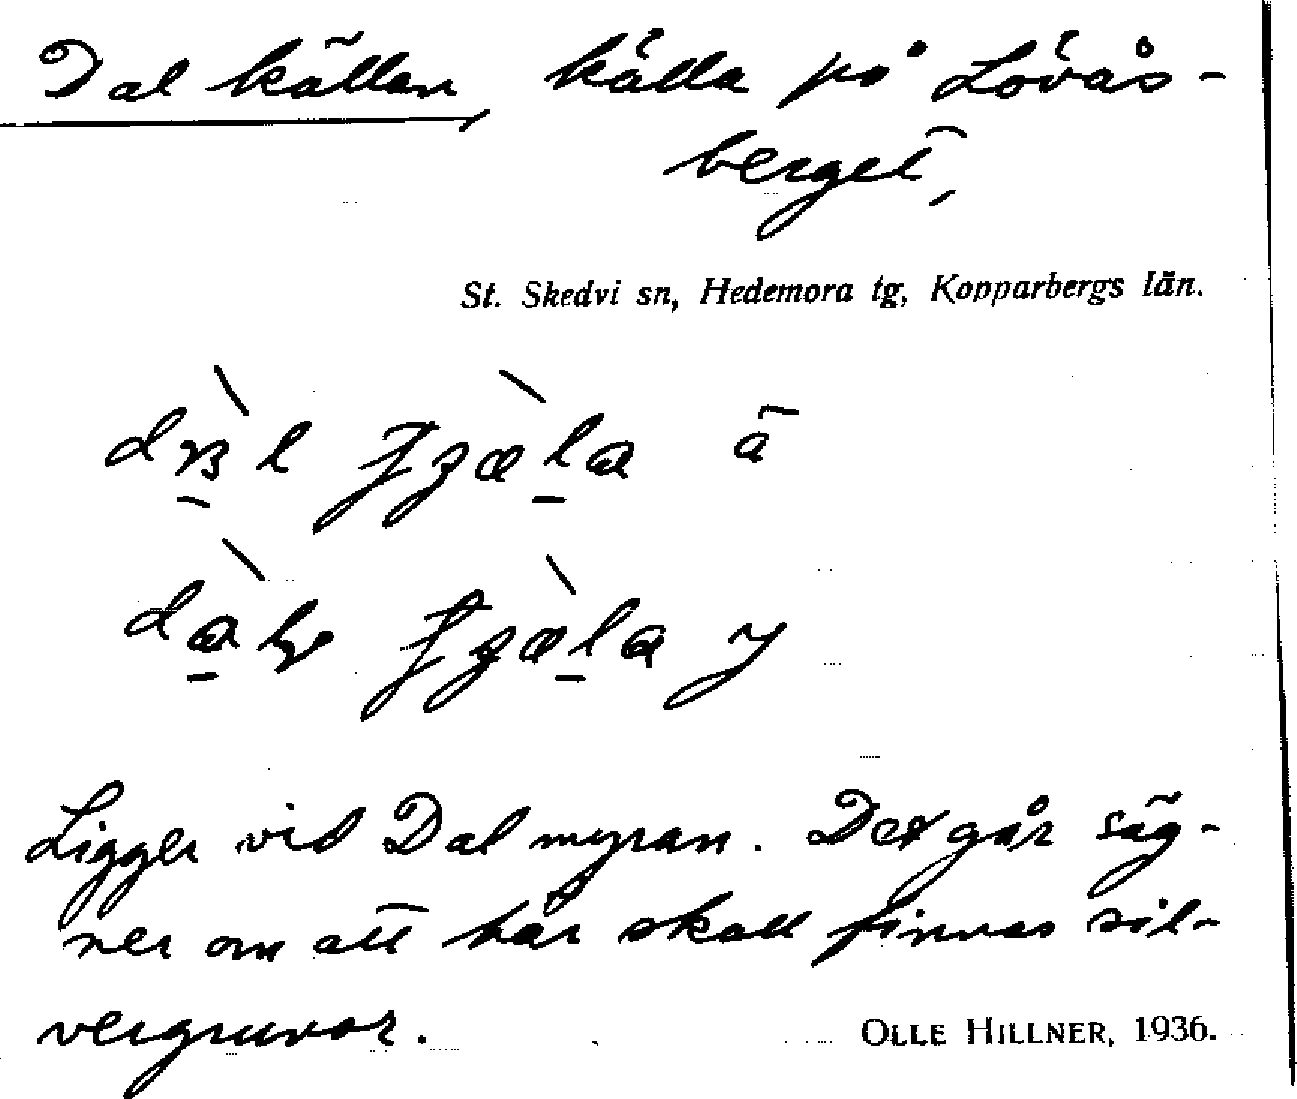 Dalkällan, källa på Lövås-
berget,
St. Skedvi sn, Hedemora tg, Kopparbergs län.
Ligger vid Dalmyran. Det går säg-
ner om att här skall finnas sil-
vergruvor.
OLLE HILLNER, 1936.